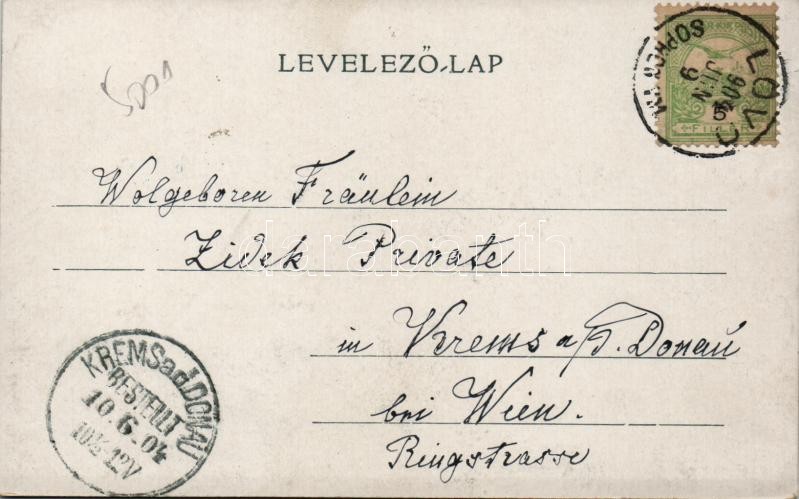 LEVELEZŐ-LAP
5001
LÖVŐ
904 JUN 9
FILLÉR
Wolgeboren Fräulein
Zidek Private
in Krems a/d. Donau
bei Wien.
Ringstrasse
KREMS a.d. DONAU
BESTELLT
10.6.04
10½-12V
darabanth